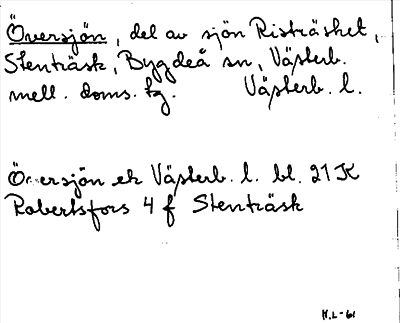 Översjön, del av sjön Risträsket,
Stenträsk, Bygdeå sn, Västerb.
mell. doms. tg. Västerb. l.
Översjön ek Västerb. l. bl. 21 K
Robertsfors 4 f Stenträsk
H.L-61